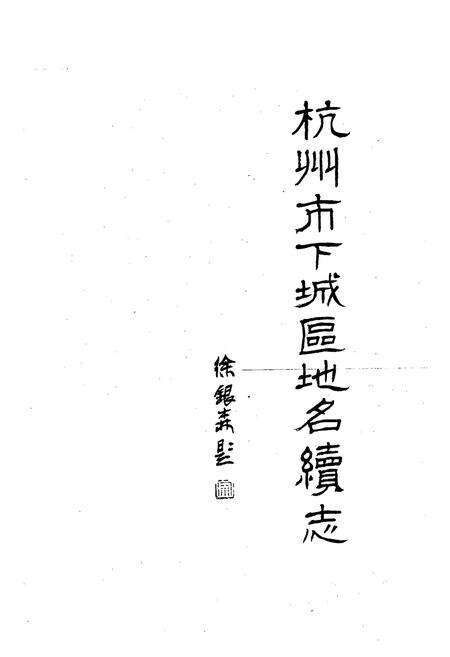 杭州市下城區地名續志
徐銀森題